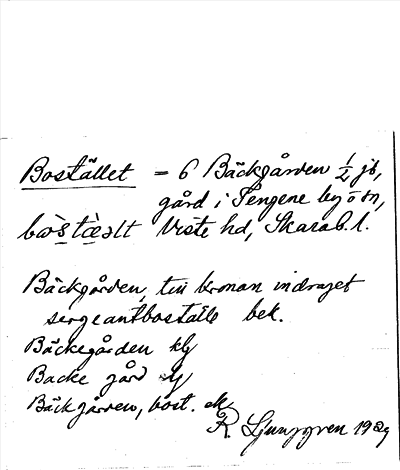 Bostället = 6 Bäckgården 1/2 jb,
gård i Tengene by o sn,
Viste hd, Skarab. l.
Bäckgården, till kronan indraget
sergeantboställe bek.
Bäckegården
Backe gård
Bäckgården, bost. ek
R. Ljunggren 1929